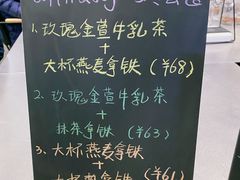 1、玫瑰金萱牛乳茶
+
大杯燕麦拿铁（¥68）
2、玫瑰金萱牛乳茶
+
抹茶拿铁（¥63）
3、大杯燕麦拿铁
+
（¥61）